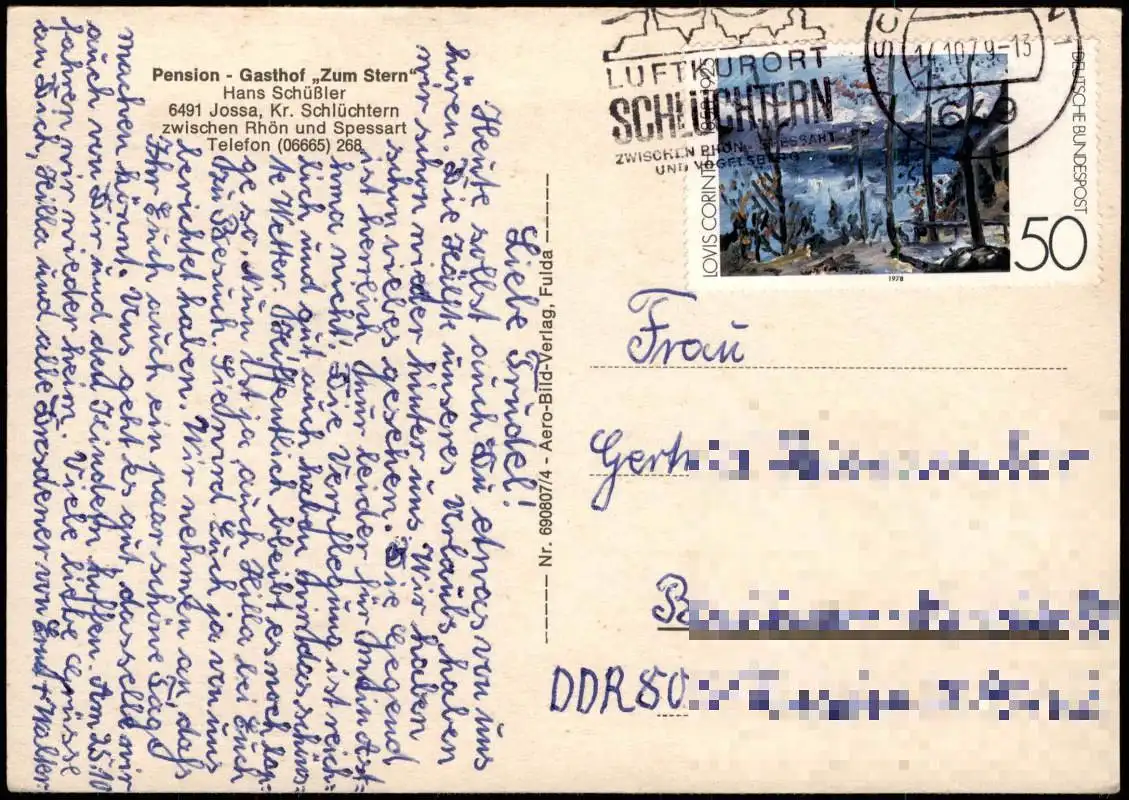 Pension - Gasthof „Zum Stern“
Hans Schüßler
6491 Jossa, Kr. Schlüchtern
zwischen Rhön und Spessart
Telefon (06665) 268
Liebe Trudel!
Heute sollst auch Du etwas von uns
hören. Die Hälfte unseres Urlaubs haben
wir schon wieder hinter uns. Wir haben
schon vieles gesehen. Die Gegend
ist herrlich, nur leider für mein Ast=
hma nicht! Die Verpflegung ist reich=
lich und gut auch haben wir das schöns=
te Wetter. Hoffentlich bleibt es noch lan=
ge so. Nun ist ja auch Hilla bei Euch
zu Besuch. Sie wird Euch ja von uns
berichtet haben. Wir nehmen an, daß
Ihr Euch auch ein paar schöne Tage
machen könnt. Uns geht es gut, dasselbe wir
auch von Dir und den Kindern hoffen. Am 25.10
fahren wir wieder heim. Viele liebe Grüsse
an Dich, Hilla und alle Dresdener von + Walter
Nr. 690807/4 - Aero-Bild-Verlag, Fulda
LUFTKURORT
SCHLÜCHTERN
ZWISCHEN RHÖN - SPESSART
UND VOGELSBERG
14.10.79-13
LOVIS CORINTH 1858-1925
DEUTSCHE BUNDESPOST
50
1978
Frau
DDR 80